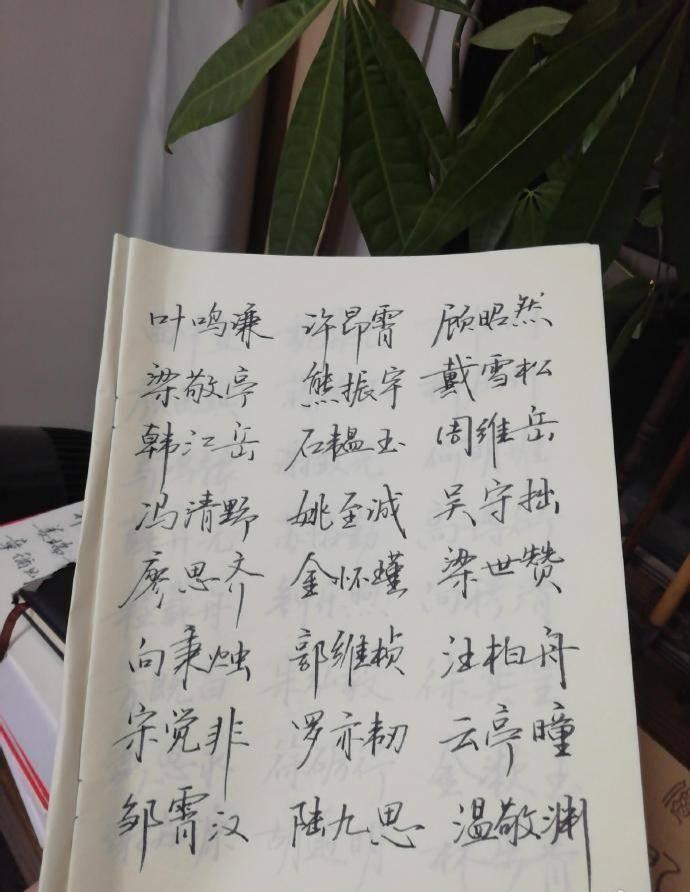 叶鸣廉 许昂霄 顾昭然
梁敬亭 熊振宇 戴雪松
韩江岳 石韫玉 周维岳
冯清野 姚至诚 吴守拙
廖思齐 金怀瑾 梁世赞
向秉烛 郭维桢 汪柏舟
宋觉非 罗亦韧 云亭瞳
邹霄汉 陆九思 温敬渊